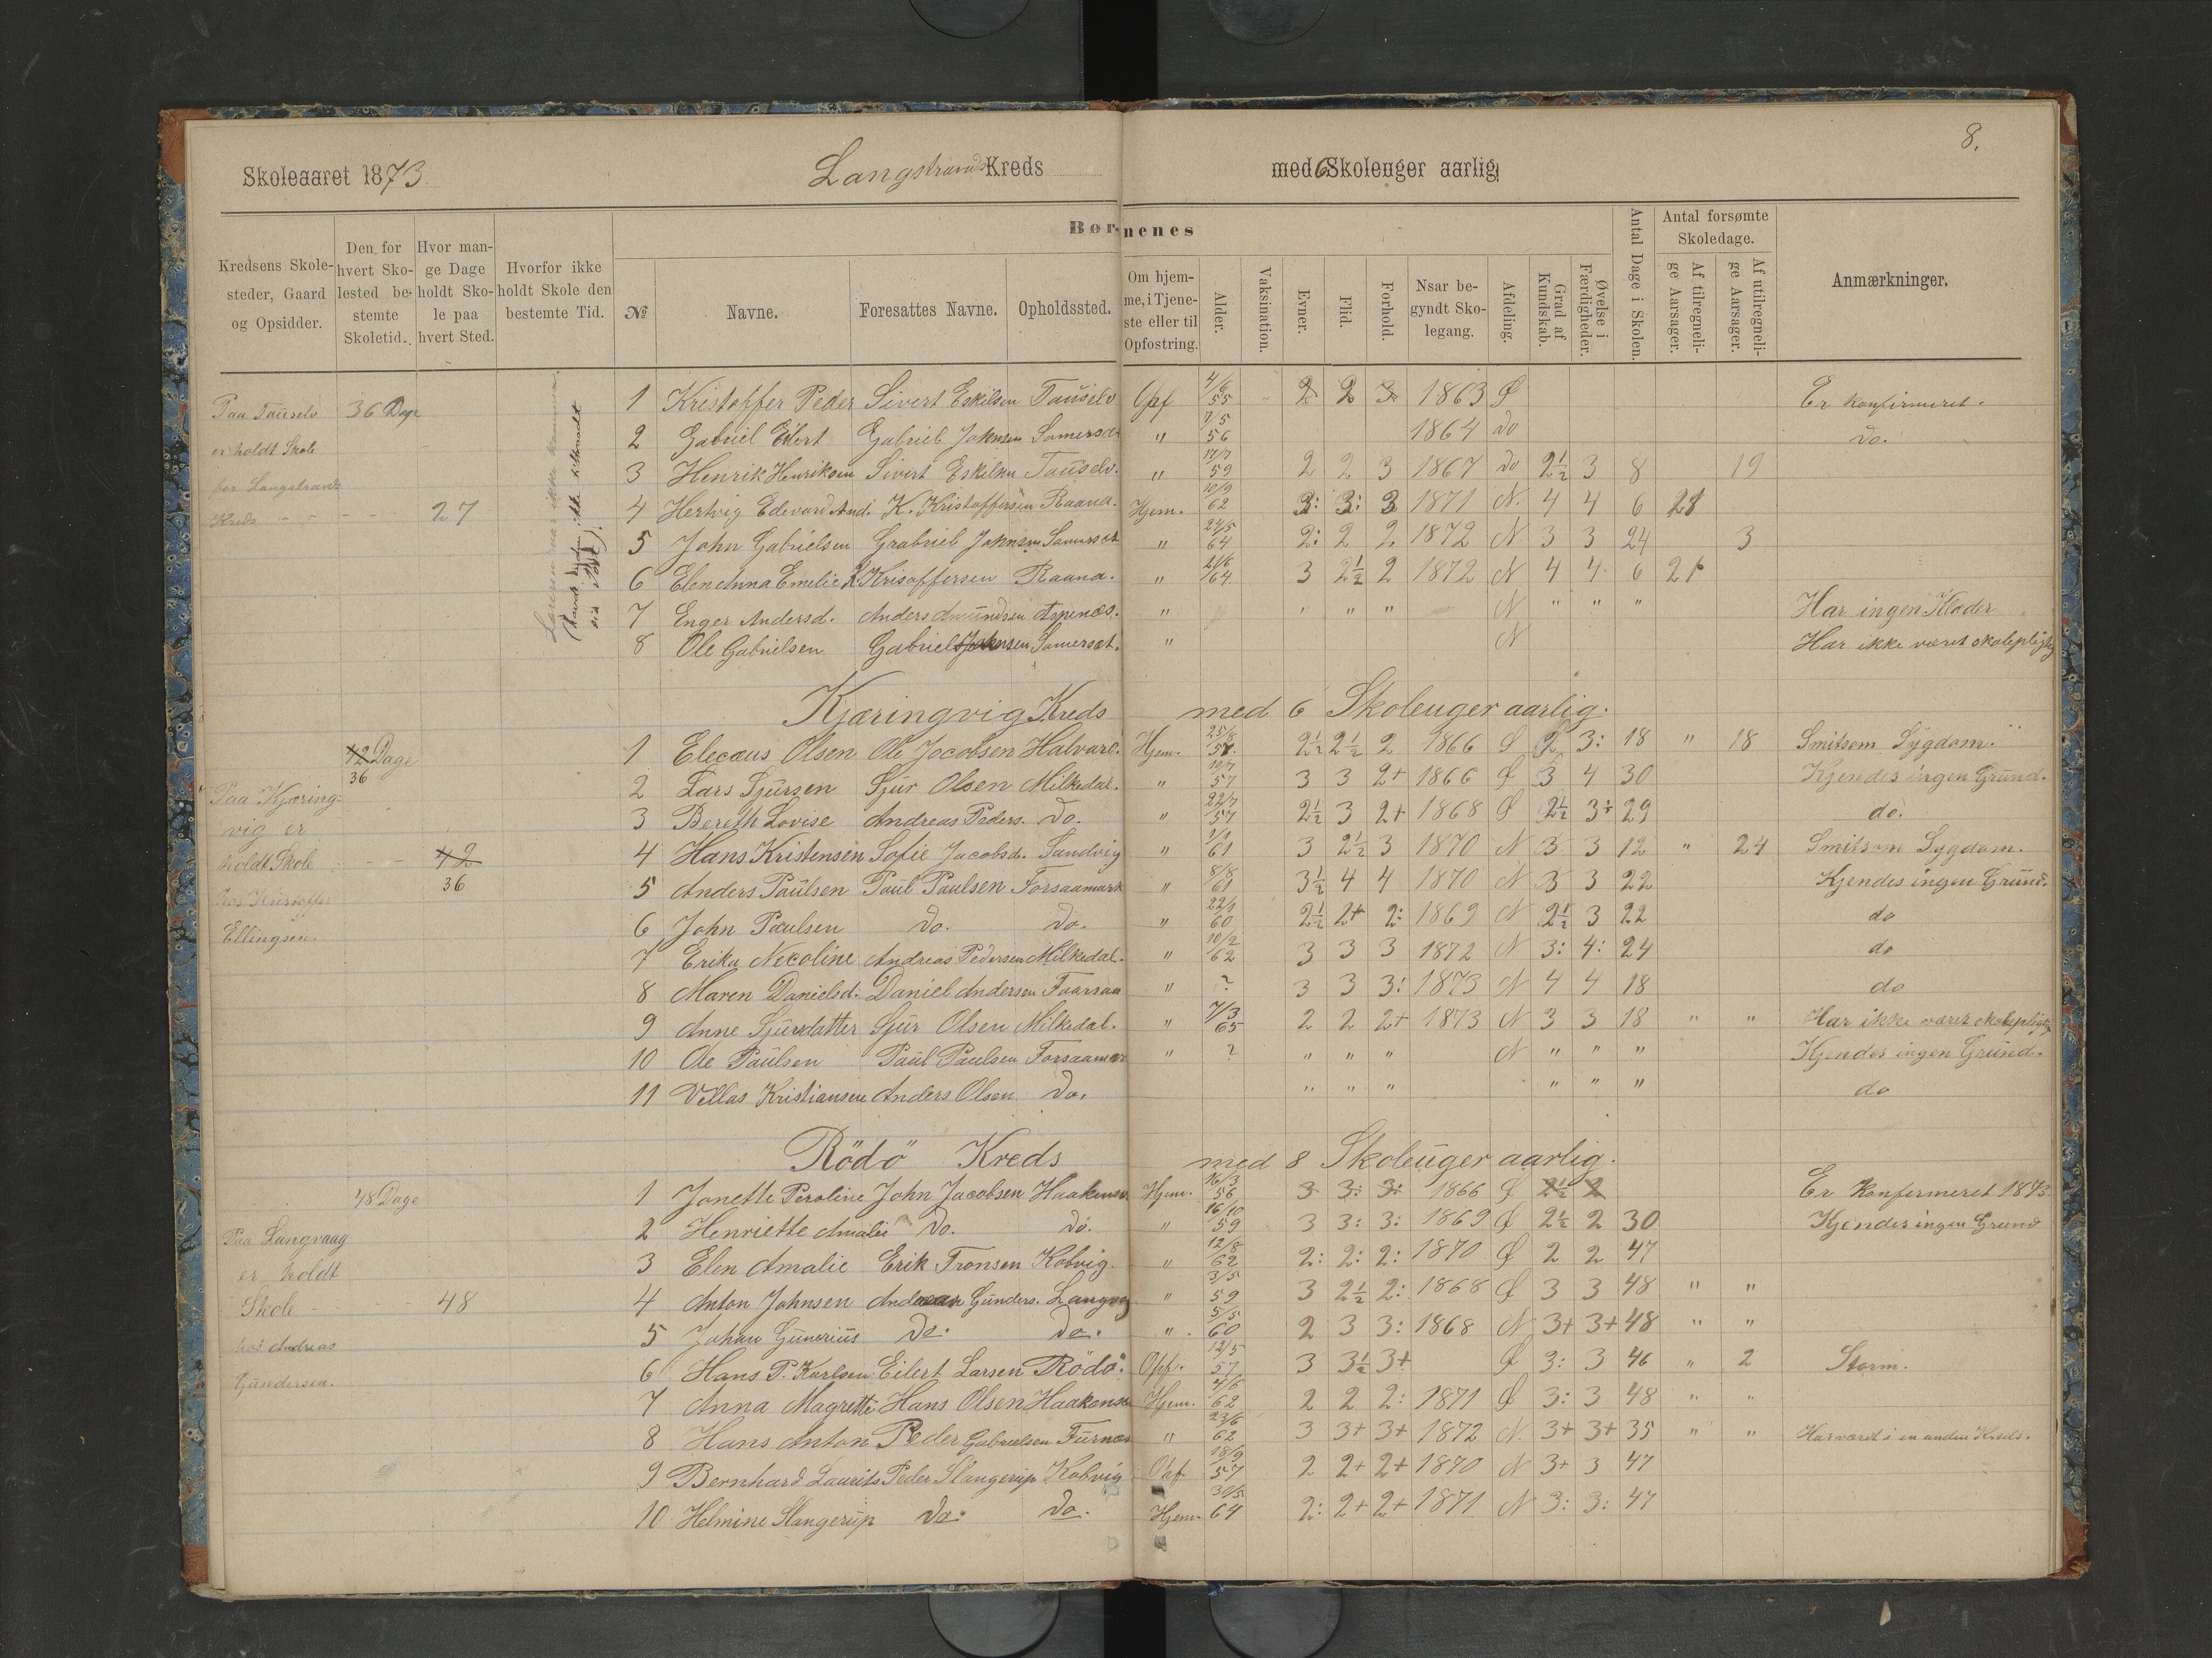 8.
Skoleaaret 1873 Langstrands Kreds med 6 Skoleuger aarlig.
Kredsens Skolesteder, Gaard og Opsidder.
Den for hvert Skolested bestemte Skoletid.
Hvor mange Dage holdt Skole paa hvert Sted.
Hvorfor ikke holdt Skole den bestemte Tid.
Børnenes
№
Navne.
Foresattes Navne.
Opholdssted.
Om hjemme, i Tjeneste eller til Opfostring.
Alder.
Vaksination.
Evner.
Flid.
Forhold.
Naar begyndt Skolegang.
Afdeling.
Grad af Kundskab.
Øvelse i Færdigheder.
Antal Dage i Skolen.
Antal forsømte Skoledage.
Af tilregnelige Aarsager.
Af utilregnelige Aarsager.
Anmærkninger.
Paa Tauselv 36 Dage
er holdt Skole
for Langstrands
Kreds - - - - 27
1 Kristoffer Peder Sivert Eskilsen Tauselv Opf 4/6 55 2 2 3 1863 Ø Er konfirmeret.
2 Gabriel Eilert Gabriel Johnsen Somerset " 7/5 56 1864 do do.
3 Henrik Henriksen Sivert Eskilsen Tauselv. " 17/7 59 2 2 3 1867 do 2½ 3 8 19
4 Hertvig Edevard And. K. Kristoffersen Raana. Hjem. 10/9 62 3: 3: 3 1871 N. 4 4 6 21
5 John Gabrielsen Gabriel Johnsen Somerset " 24/5 64 2: 2 2 1872 N 3 3 24 3
6 Elen Anna Emelie K. Kristoffersen Raana. " 21/6 64. 3 2½ 2 1872 N 4 4 6 21
7 Enger Andersd. Anders Amundsen Aspenæs. " " " " N " " " Har ingen Klæder
8 Ole Gabrielsen Gabriel Johnsen Somerset. " N Har ikke været skolepligtig
Kjæringvig Kreds med 6 Skoleuger aarlig.
42 Dage
36
Paa Kjæring-
vig er
holdt Skole - - 42
36
hos Kristoffer
Ellingsen.
1 Elecæus Olsen Ole Jacobsen Halvarl. Hjem. 25/8 57. 2½ 2½ 2 1866 Ø 2 3: 18 " 18 Smitsom Sygdom.
2 Lars Sjursen Sjur Olsen Milkedal. " 10/7 57 3 3 2+ 1866 Ø 3 4 30 Kjendes ingen Grund.
3 Bereth Lovise Andreas Peders. do. " 22/7 57 2½ 3 2+ 1868 Ø 2½ 3+ 29 do.
4 Hans Kristensen Sofie Jacobsd. Sandvig " 1/1 61 3 2½ 3 1870 N 3 3 12 " 24 Smitsom Sygdom.
5 Anders Paulsen Paul Paulsen Forsaamark " 8/8 61 3½ 4 4 1870 N 3 3 22 Kjendes ingen Grund.
6 John Paulsen do. do. " 22/1 60 2½ 2+ 2: 1869 N 2½ 3 22 do
7 Erika Necoline Andreas Pedersen Milkedal. " 10/2 62 3 3 3 1872 N 3: 4: 24 do
8 Maren Danielsd. Daniel Andersen Faarsaa " ? 3 3 3: 1873 N 4 4 18 do
9 Anne Sjursdatter Sjur Olsen Milkedal. " 7/3 65 2 2 2+ 1873 N 3 3 18 " " Har ikke været skolepligtig
10 Ole Paulsen Paul Paulsen Forsaamark " ? " " " N " " " Kjendes ingen Grund.
11 Vellas Kristiansen Anders Olsen do. " " " " " " do
Rödö Kreds med 8 Skoleuger aarlig.
48 Dage
Paa Langvaag
er holdt
Skole - 48
hos Andreas
Gundersen.
1 Jonette Peroline John Jacobsen Haakens. Hjem. 16/3 56 3 3: 3: 1866 Ø 2½ 2 Er Konfirmeret 1873.
2 Henriette Amalie do. do. " 16/10 59 3 3: 3: 1869 Ø 2½ 2 30 Kjendes ingen Grund
3 Elen Amalie Erik Tronsen Kobvig. " 12/8 62 2: 2: 2: 1870 Ø 2 2 47
4 Anton Johnsen Andreas Gunders. Langvag " 3/5 59 3 2½ 2: 1868 Ø 3 3 48 " "
5 Johan Gunerius do. do. " 5/5 60 2 3 3: 1868 N 3+ 3+ 48 " "
6 Hans P. Karlsen Eilert Larsen Rödö. Opf. 12/5 57 3 3½ 3+ Ø 3: 3 46 " 2 Storm.
7 Anna Magrette Hans Olsen Haakens. Hjem. 4/6 62 2 2 2: 1871 Ø 3: 3 48 " "
8 Hans Anton Peder Gabrielsen Furnæs " 23/6 62 3 3+ 3+ 1872 N. 3+ 3+ 35 " " Har været i en anden Kreds.
9 Bernhard Laurits Peder Slangerup Kobvig Opf 18/9 57 2 2+ 2+ 1870 N 3+ 3 47
10 Helmine Slangerup do. do. Hjem. 30/5 64 2: 2+ 2+ 1871 N 3: 3: 47